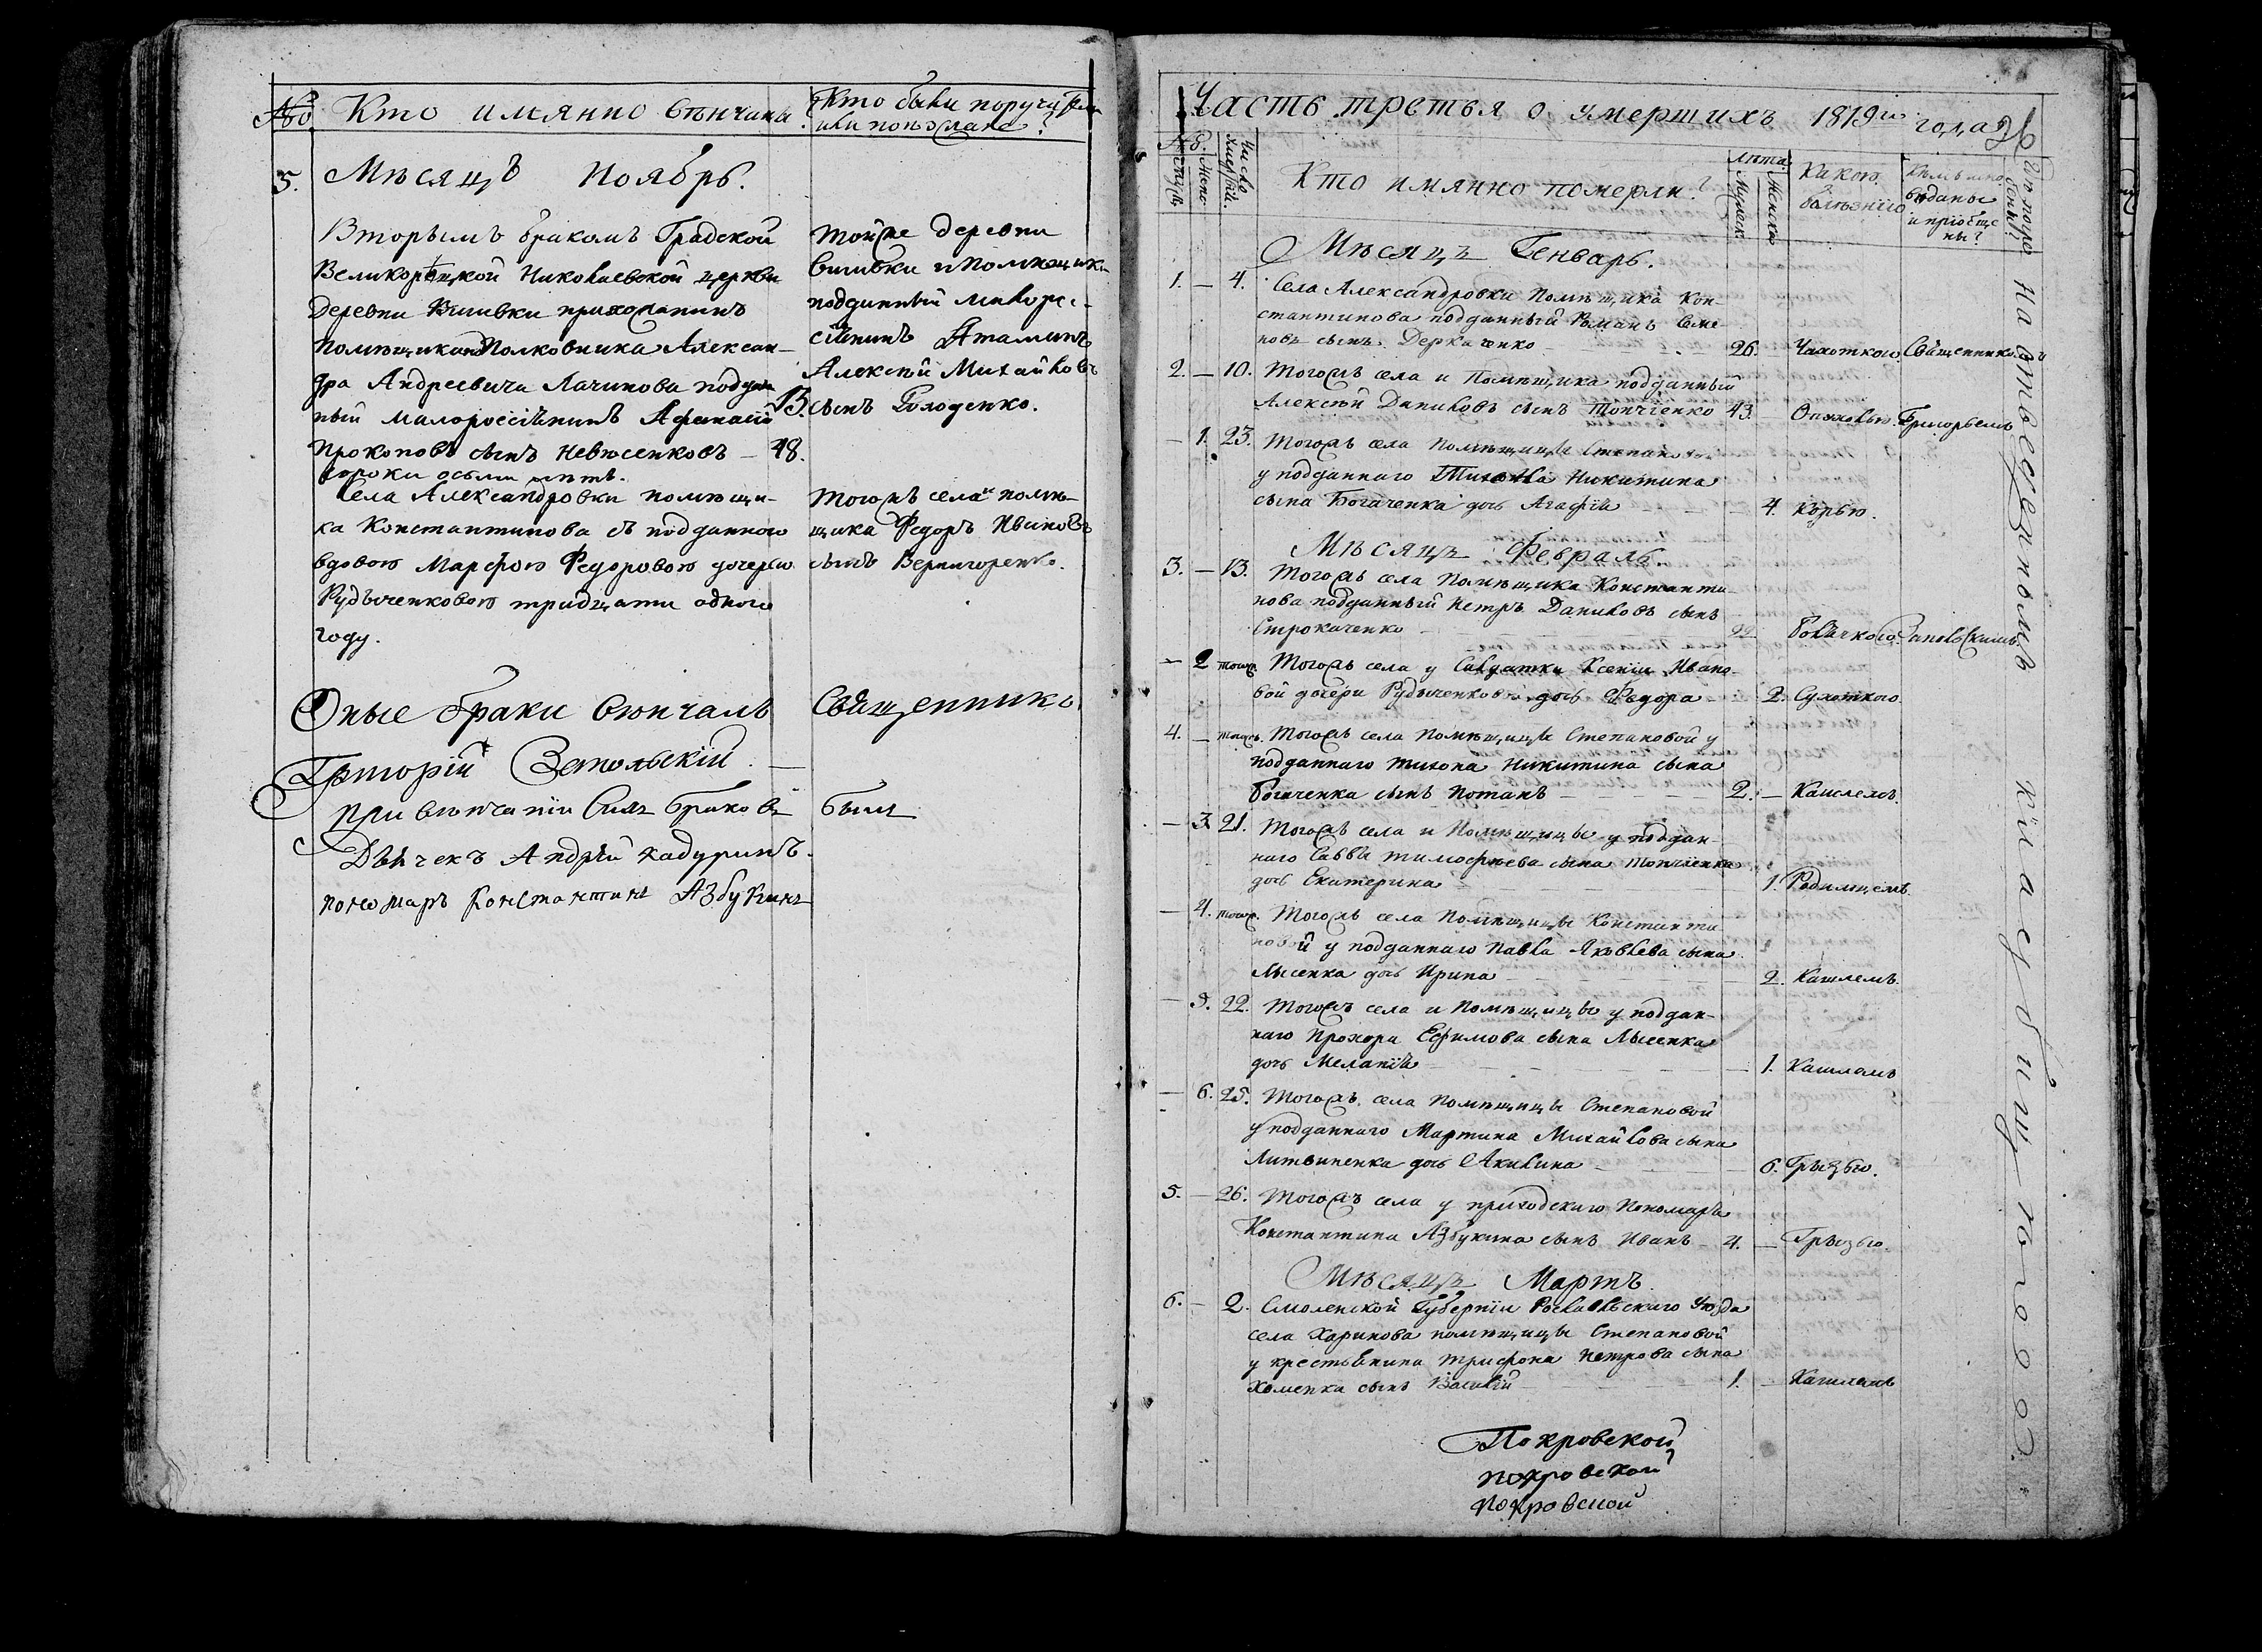 №
Кто имянно вѣнчаны.
Кто были поручители
или поѣзжане?
5.
Мѣсяцъ Ноябрь.
Вторымъ бракомъ Градской
Великорѣцкой Николаевской церкви
деревни Вшивки прихожанинъ
помѣщика Полковника Алексан-
дра Андреевича Лачинова поддан
ный малороссіянинъ Афанасій
Прокоповъ сынъ Невѣсенковъ — 48.
сороки осьми лѣтъ.
села Александровки помѣщи-
ка Константинова съ подданною
вдовою Марфою Федоровою дочерью
Рудыченковою тридцати одного
году.
13.
тойже деревни
Вшивки и помѣщика
подданный малорос-
сіянинъ
Алексѣй Михайловъ
сынъ Голоденко.
тогожъ села и помѣ-
щика Федоръ Ивановъ
сынъ Вернигоренко.
Оные браки вѣнчалъ Священникъ
Григорій Запольскій.
при вѣнчаніи сихъ браковъ были
Дьячекъ Андрѣй Кадуринъ.
пономарь Константинъ Азбукинъ
Часть третья о умершихъ 1819го года
№
Муж.
Женс.
Число
умершихъ.
Кто имянно померли?
лѣта
Мужеск.
Женска
Какою
болѣзнію
Кѣмъ испо
вѣданы
и пріобще
ны?
Мѣсяцъ Генварь.
1. — 4. Села Александровки Помѣщика Кон-
стантинова подданный Романъ Семе-
новъ сынъ Деркаченко — 26. — Чахоткою Священникомъ
2. — 10. Тогожъ села и Помѣщика подданный
Алексѣй Даниловъ сынъ Топчіенко 43. — Опухолью. Григорьемъ
— 1. 23. Тогожъ села Помѣщицы Степановой
у подданнаго Тихона Никитина
сына Богаченка дочь Агафія — 4. корью.
Мѣсяцъ Февраль.
3. — 13. Тогожъ села Помѣщика Константи
нова подданный Петръ Даниловъ сынъ
Строкаченко — 22 Горячкою Запольскимъ
— 2 тогожъ Тогожъ села у Салдатки Ксеніи Ивано-
вой дочери Рудыченковой дочь Федора — 2. Сухоткою
4. — тогожъ. Тогожъ села Помѣщицы Степановой у
подданнаго Тихона Никитина сына
Богаченка сынъ Потапъ — 2. — Кашлемъ.
— 3. 21. Тогожъ села и Помѣщицы у поддан-
наго Саввы Тимофѣева сына Топчіенка
дочь Екатерина — 1. Родимцемъ.
— 4. тогожъ. Тогожъ села Помѣщицы Константи
новой у подданнаго Павла Яковлева сына
Лысенка дочь Ирина — 2. Кашлемъ.
— 5. 22. Тогожъ села и Помѣщицы у поддан-
наго Прохора Ефимова сына Лысенка
дочь Меланія — 1. Кашлемъ
— 6. 25. Тогожъ села Помѣщицы Степановой
у подданнаго Мартина Михайлова сына
Литвиненка дочь Акилина — 6. Грызью.
5. — 26. Тогожъ села у приходскаго Пономаря
Константина Азбукина сынъ Иванъ — 4. — Грызью.
Мѣсяцъ Мартъ.
6. — 2. Смоленской Губерніи Рославльскаго Уѣзда
села Харинова помѣщицы Степановой
у крестьянина Трифона Петрова сына
Хоменка сынъ Василій — 1. — Кашлемъ
На отведенномъ кладбищу погребены
Покровской
покровской
покровской